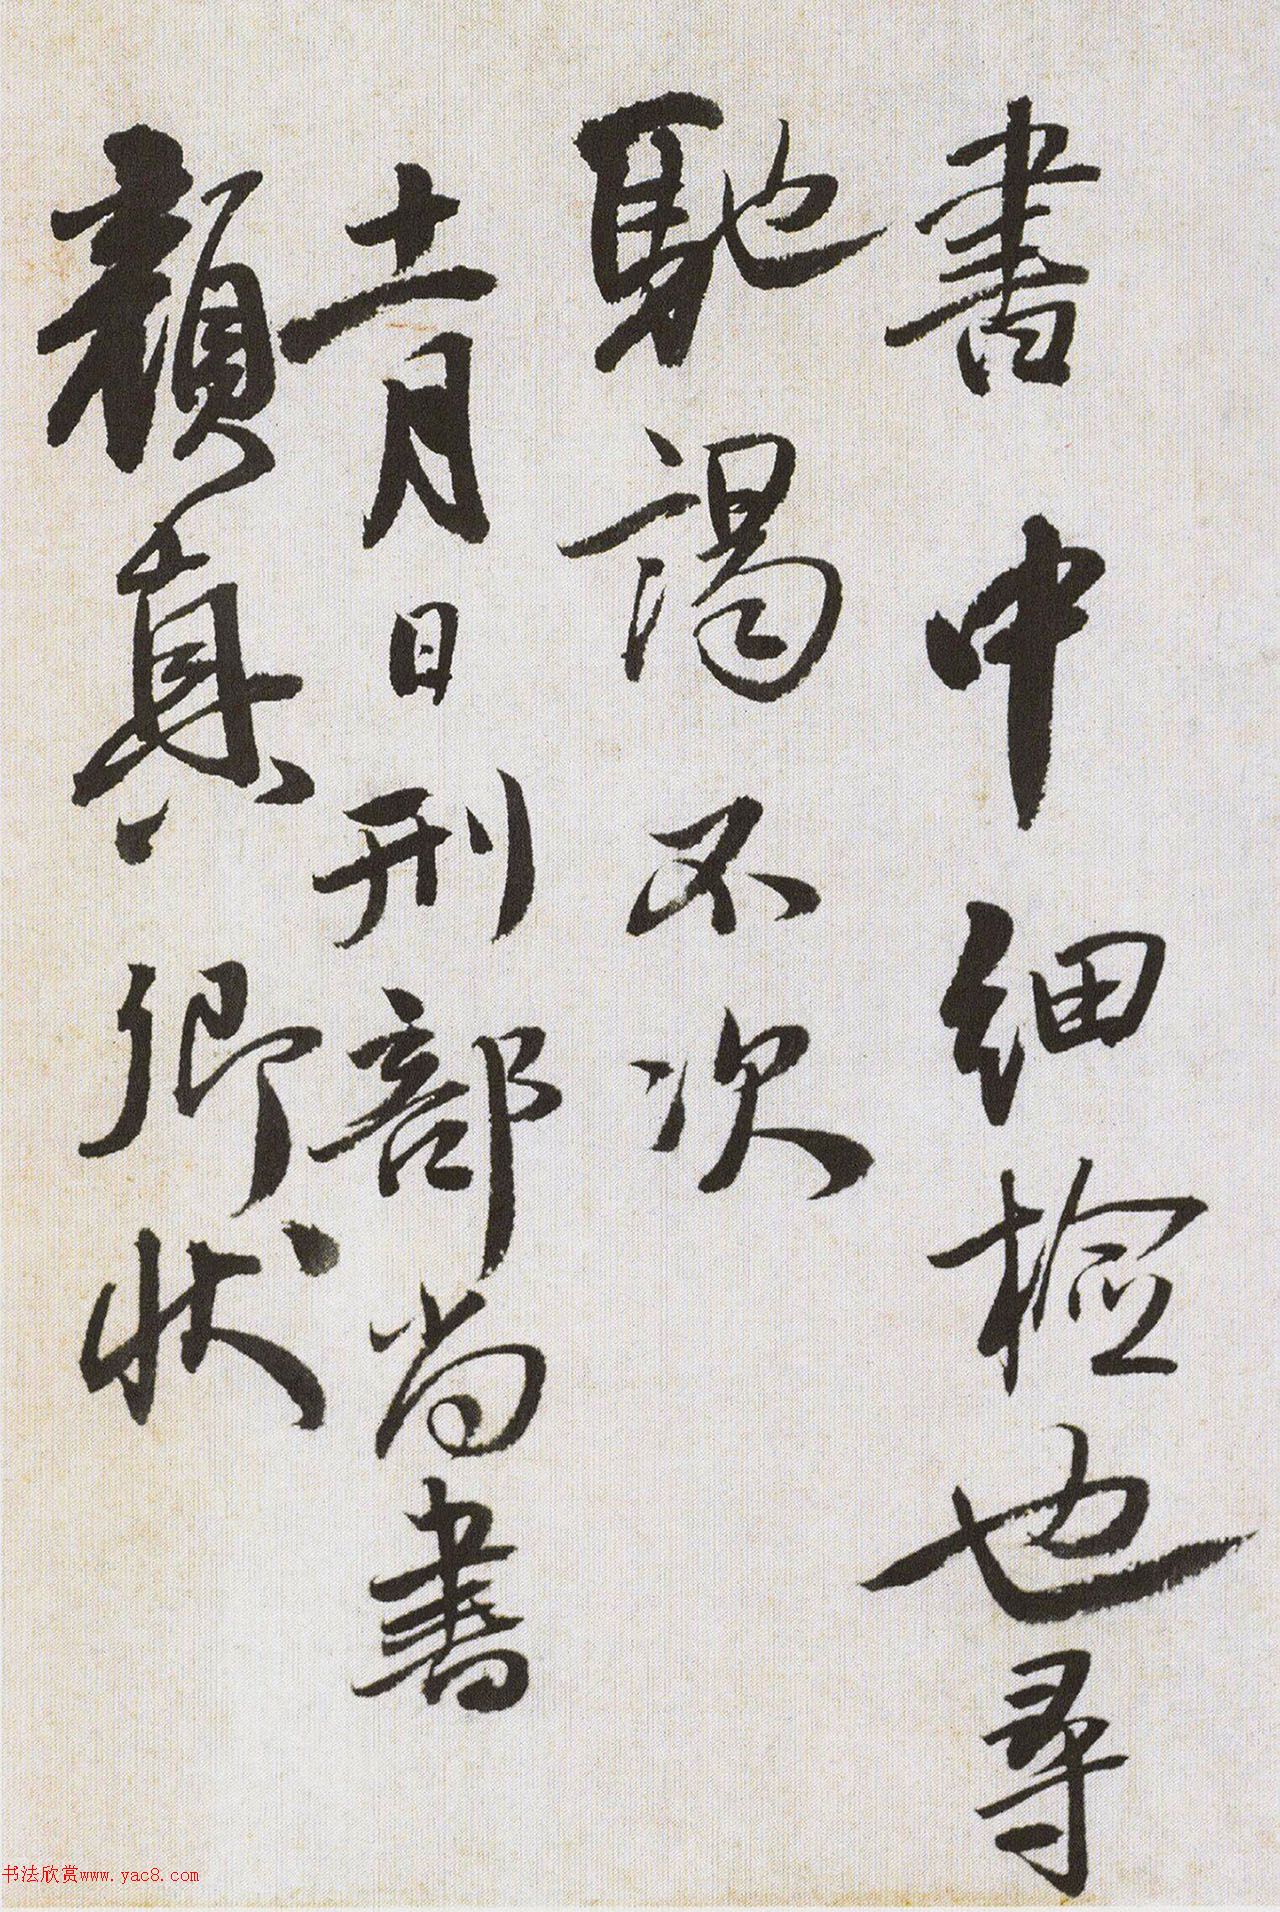 書中細檢也尋
馳謁不次
十一月日刑部尚書
顏真卿狀
书法欣赏www.yac8.com